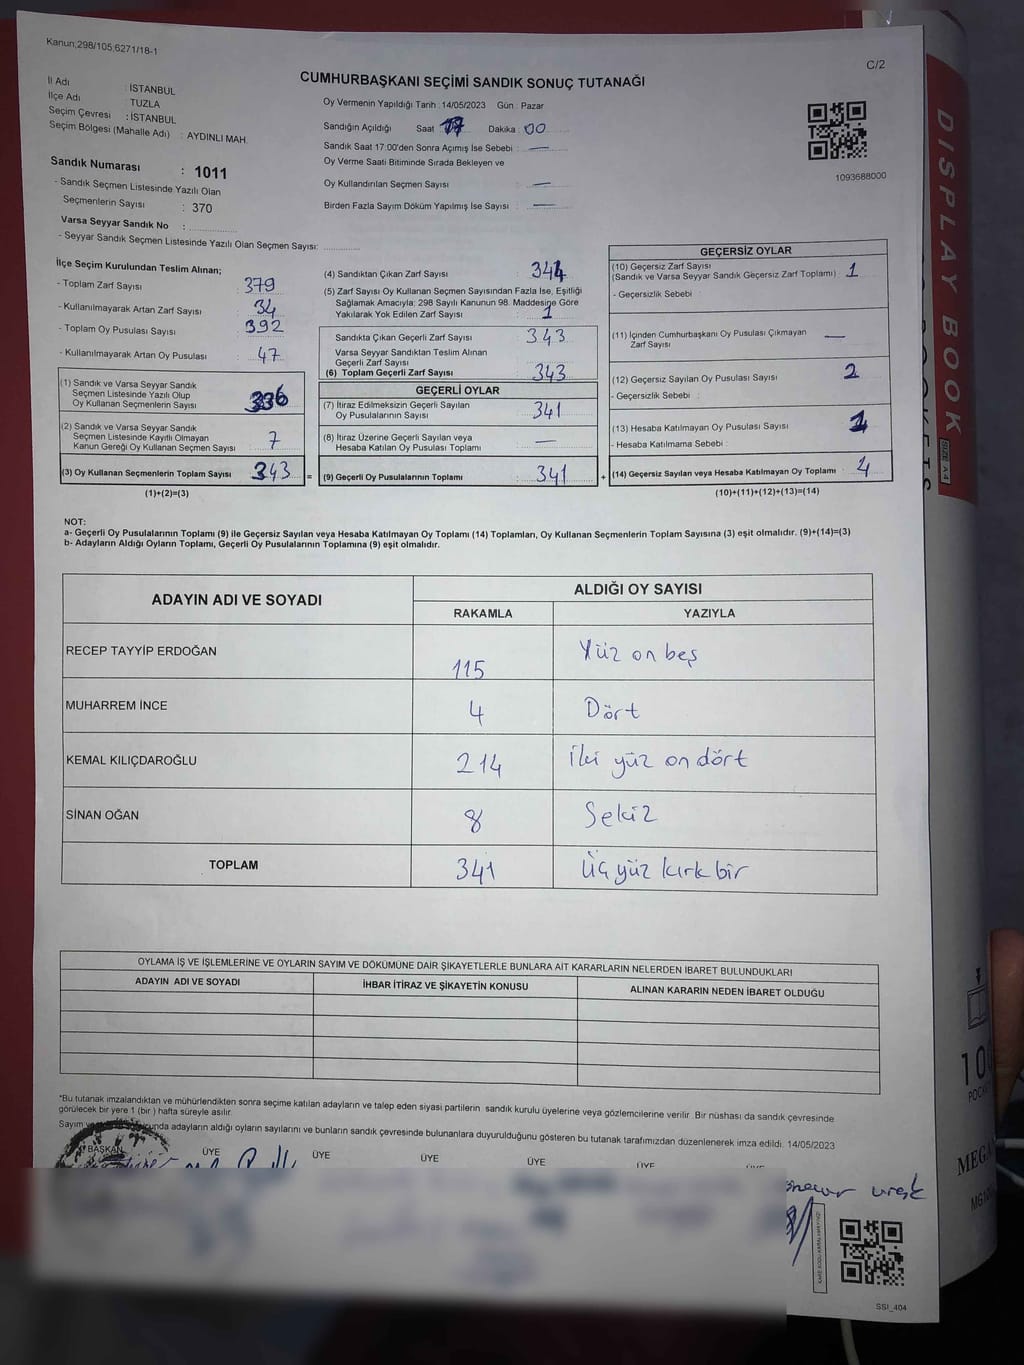 Kanun,298/105,6271/18-1
C/2
CUMHURBAŞKANI SEÇİMİ SANDIK SONUÇ TUTANAĞI
İl Adı : İSTANBUL
İlçe Adı TUZLA
Seçim Çevresi : İSTANBUL
Seçim Bölgesi (Mahalle Adı) : AYDINLI MAH.
Sandık Numarası : 1011
- Sandık Seçmen Listesinde Yazılı Olan
Seçmenlerin Sayısı : 370
Varsa Seyyar Sandık No :
- Seyyar Sandık Seçmen Listesinde Yazılı Olan Seçmen Sayısı:
Oy Vermenin Yapıldığı Tarih : 14/05/2023 Gün : Pazar
Sandığın Açıldığı Saat 17 Dakika : 00
Sandık Saat 17:00'den Sonra Açımış İse Sebebi : —
Oy Verme Saati Bitiminde Sırada Bekleyen ve
Oy Kullandırılan Seçmen Sayısı : —
Birden Fazla Sayım Döküm Yapılmış İse Sayısı : —
1093688000
İlçe Seçim Kurulundan Teslim Alınan;
- Toplam Zarf Sayısı : 379
- Kullanılmayarak Artan Zarf Sayısı : 34
- Toplam Oy Pusulası Sayısı : 392
- Kullanılmayarak Artan Oy Pusulası : 47
(1) Sandık ve Varsa Seyyar Sandık
Seçmen Listesinde Yazılı Olup
Oy Kullanan Seçmenlerin Sayısı : 336
(2) Sandık ve Varsa Seyyar Sandık
Seçmen Listesinde Kayıtlı Olmayan
Kanun Gereği Oy Kullanan Seçmen Sayısı : 7
(3) Oy Kullanan Seçmenlerin Toplam Sayısı : 343 =
(1)+(2)=(3)
(4) Sandıktan Çıkan Zarf Sayısı : 344
(5) Zarf Sayısı Oy Kullanan Seçmen Sayısından Fazla İse, Eşitliği
Sağlamak Amacıyla; 298 Sayılı Kanunun 98. Maddesine Göre
Yakılarak Yok Edilen Zarf Sayısı : 1
Sandıkta Çıkan Geçerli Zarf Sayısı : 343
Varsa Seyyar Sandıktan Teslim Alınan
Geçerli Zarf Sayısı
(6) Toplam Geçerli Zarf Sayısı : 343
GEÇERLİ OYLAR
(7) İtiraz Edilmeksizin Geçerli Sayılan
Oy Pusulalarının Sayısı : 341
(8) İtiraz Üzerine Geçerli Sayılan veya
Hesaba Katılan Oy Pusulası Toplamı : —
(9) Geçerli Oy Pusulalarının Toplamı : 341 +
GEÇERSİZ OYLAR
(10) Geçersiz Zarf Sayısı
(Sandık ve Varsa Seyyar Sandık Geçersiz Zarf Toplamı) : 1
- Geçersizlik Sebebi :
(11) İçinden Cumhurbaşkanı Oy Pusulası Çıkmayan
Zarf Sayısı : —
(12) Geçersiz Sayılan Oy Pusulası Sayısı : 2
- Geçersizlik Sebebi :
(13) Hesaba Katılmayan Oy Pusulası Sayısı : 1
- Hesaba Katılmama Sebebi :
(14) Geçersiz Sayılan veya Hesaba Katılmayan Oy Toplamı : 4
(10)+(11)+(12)+(13)=(14)
NOT:
a- Geçerli Oy Pusulalarının Toplamı (9) ile Geçersiz Sayılan veya Hesaba Katılmayan Oy Toplamı (14) Toplamları, Oy Kullanan Seçmenlerin Toplam Sayısına (3) eşit olmalıdır. (9)+(14)=(3)
b- Adayların Aldığı Oyların Toplamı, Geçerli Oy Pusulalarının Toplamına (9) eşit olmalıdır.
ADAYIN ADI VE SOYADI
ALDIĞI OY SAYISI
RAKAMLA YAZIYLA
RECEP TAYYİP ERDOĞAN 115 Yüz on beş
MUHARREM İNCE 4 Dört
KEMAL KILIÇDAROĞLU 214 İki yüz on dört
SİNAN OĞAN 8 Sekiz
TOPLAM 341 Üç yüz kırk bir
OYLAMA İŞ VE İŞLEMLERİNE VE OYLARIN SAYIM VE DÖKÜMÜNE DAİR ŞİKAYETLERLE BUNLARA AİT KARARLARIN NELERDEN İBARET BULUNDUKLARI
ADAYIN ADI VE SOYADI İHBAR İTİRAZ VE ŞİKAYETİN KONUSU ALINAN KARARIN NEDEN İBARET OLDUĞU
*Bu tutanak imzalandıktan ve mühürlendikten sonra seçime katılan adayların ve talep eden siyasi partilerin sandık kurulu üyelerine veya gözlemcilerine verilir. Bir nüshası da sandık çevresinde
görülecek bir yere 1 (bir ) hafta süreyle asılır.
Sayım adayların aldığı oyların sayılarını ve bunların sandık çevresinde bulunanlara duyurulduğunu gösteren bu tutanak tarafımızdan düzenlenerek imza edildi. 14/05/2023
BAŞKAN ÜYE ÜYE ÜYE ÜYE ÜYE
SSİ_404
DISPLAY BOOK
SIZE A4
MEGA